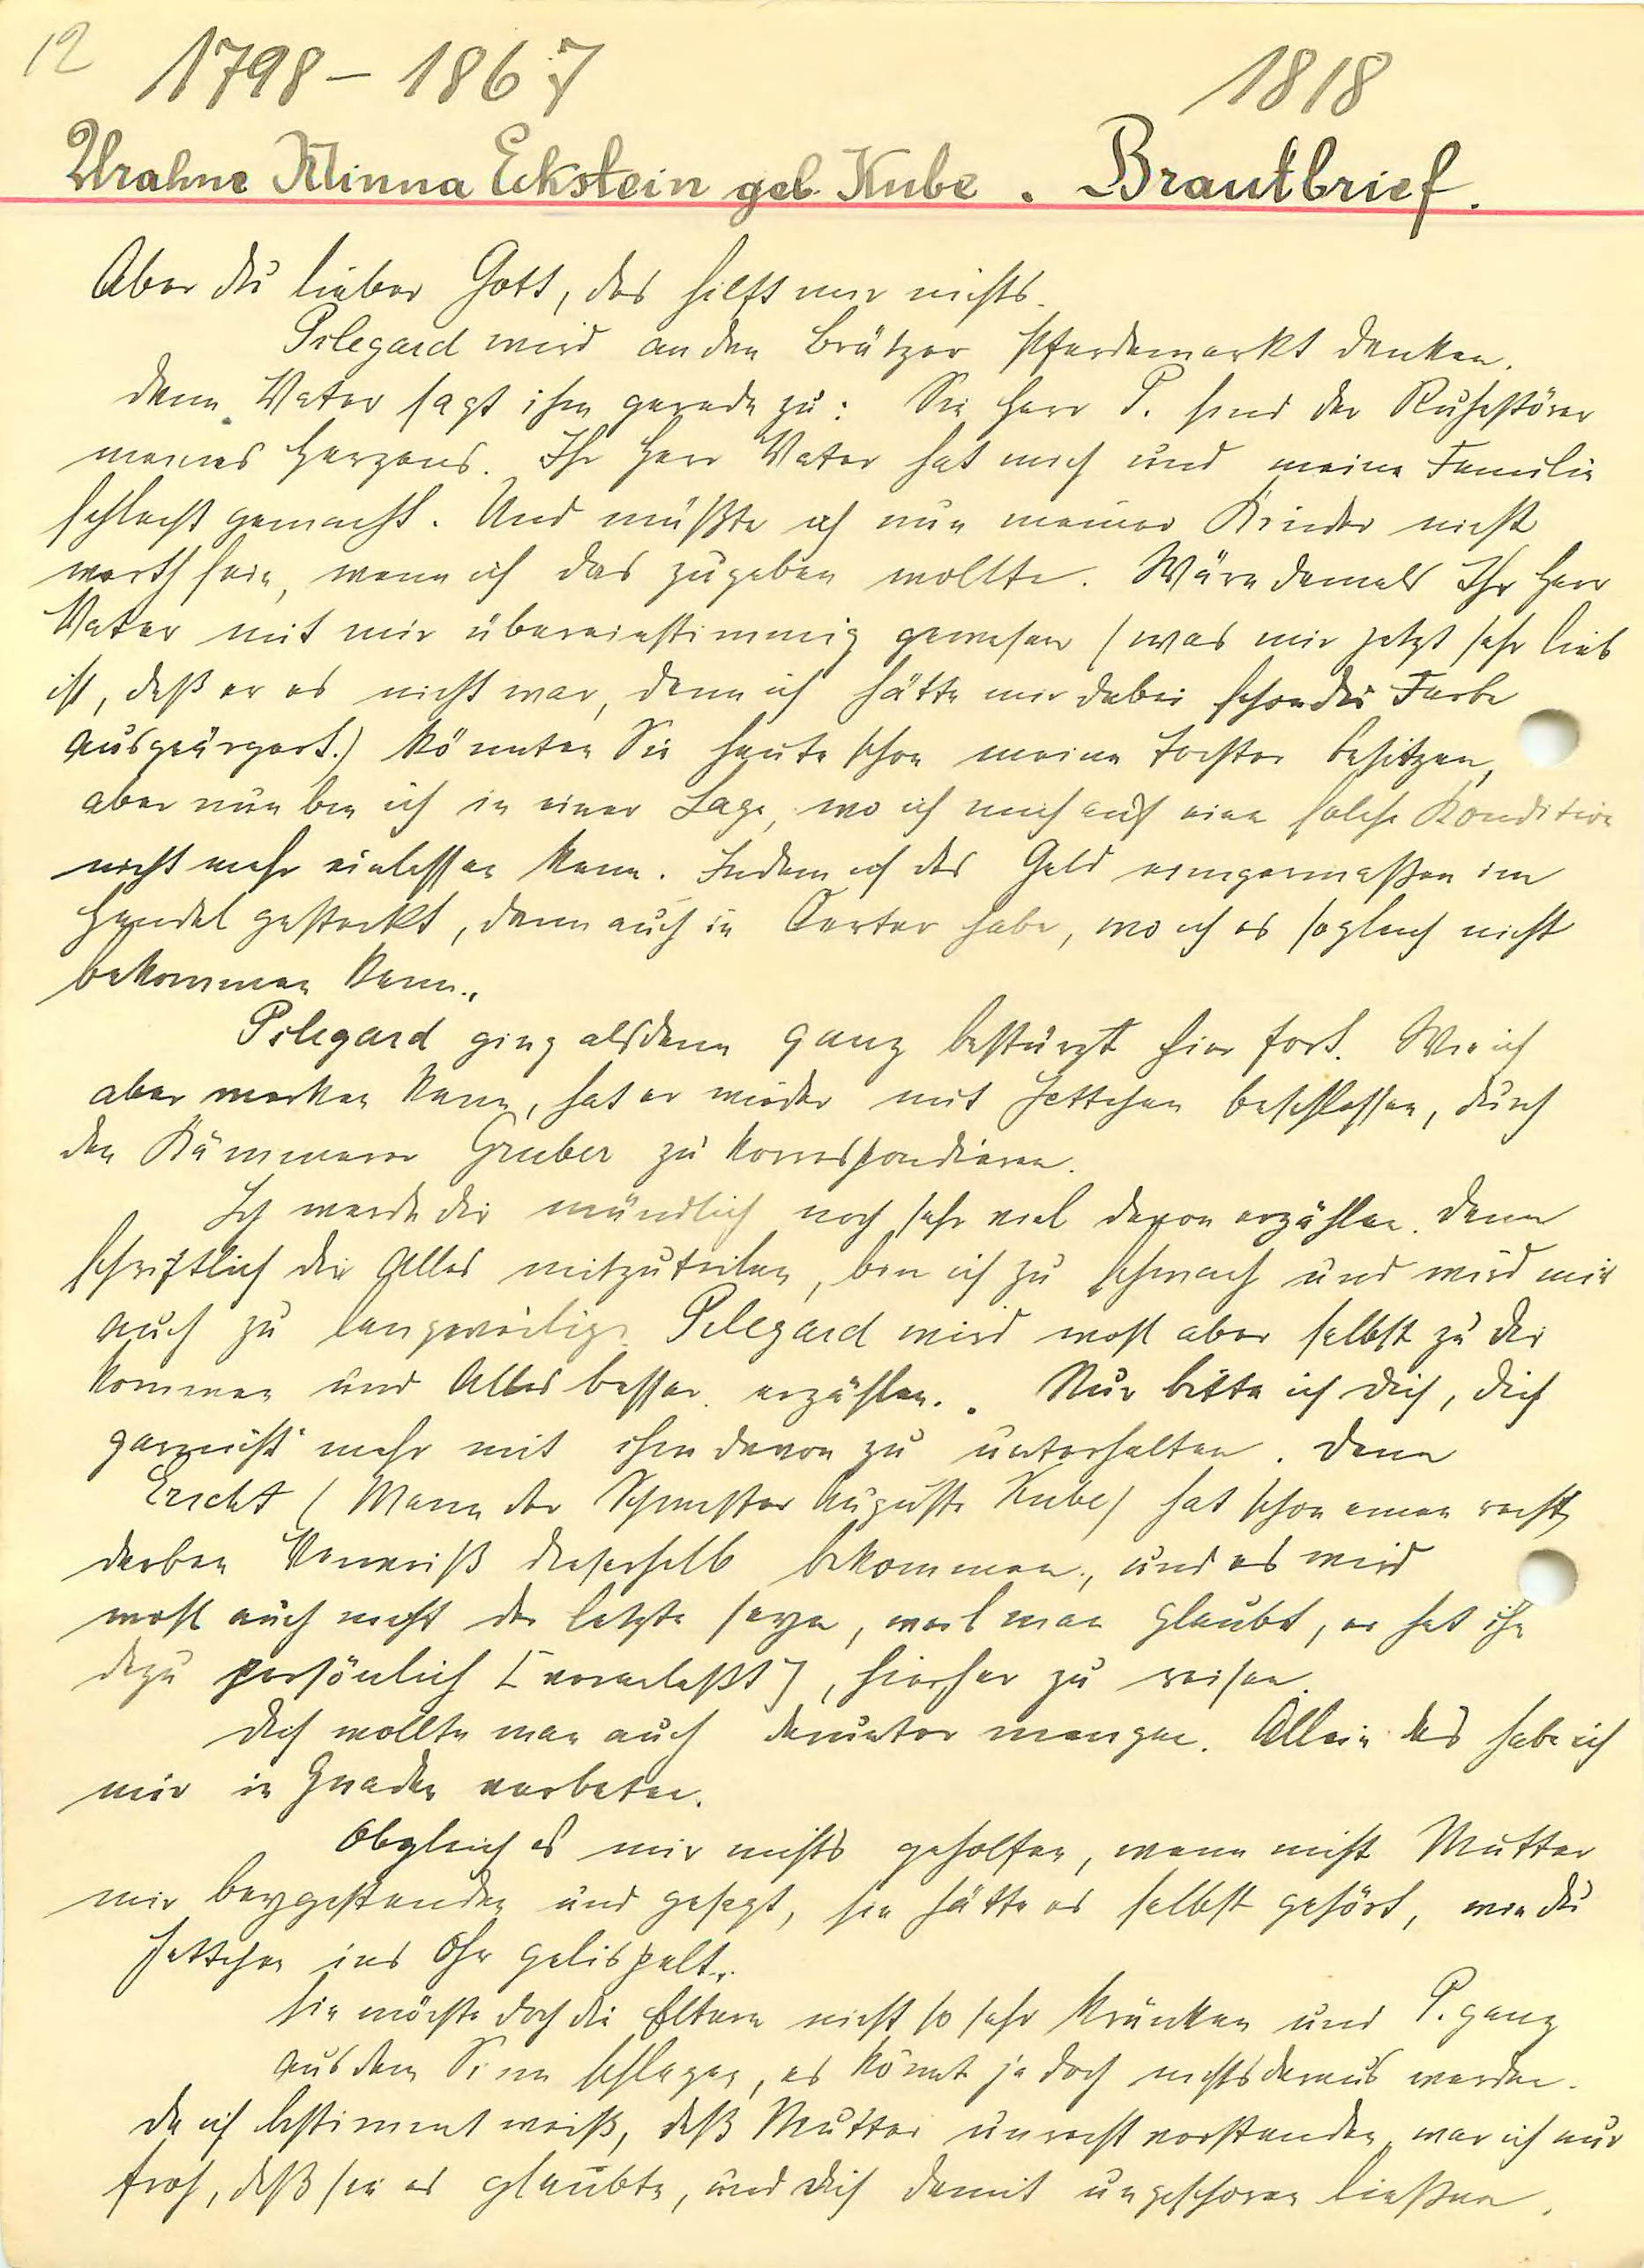 12 1798 – 1867 1818
Urahne Minna Eckstein geb. Kube . Brautbrief.
Aber du lieber Gott, das hilft mir nichts.
Pilegard wird an den Brätzer Pferdemarkt denken.
denn Vater sagt ihm geradezu: Sie Herr P. sind der Ruhestörer
meines Herzens. Ihr Herr Vater hat mich und meine Familie
schlecht gemacht. Und müßte ich nun meiner Kinder nicht
werth sein, wenn ich das zugeben wollte. Wäre damals Ihr Herr
Vater mit mir übereinstimmig gewesen (was mir jetzt sehr lieb
ist, daß er es nicht war, denn ich hätte mir dabei schon die Farbe
ausgeärgert.) könnten Sie heute schon meine Tochter besitzen,
aber nun bin ich in einer Lage, wo ich mich auf eine solche Kondition
nicht mehr einlassen kann. Indem ich das Geld einigermaßen im
Handel gesteckt, dann auch in Oerter habe, wo ich es sogleich nicht
bekommen kann.„
Pilegard ging alsdann ganz bestürzt hier fort. Wie ich
aber merken kann, hat er wieder mit Jettchen beschlossen, durch
den Kämmerer Gruber zu korrespondieren.
Ich werde dir mündlich noch sehr viel davon erzählen. denn
schriftlich dir Alles mitzuteilen, bin ich zu schwach und wird mir
auch zu langweilig. Pilegard wird wohl aber selbst zu dir
kommen und Alles besser erzählen. . Nur bitte ich dich, dich
garnicht mehr mit ihm davon zu unterhalten. denn
Ericht (Mann der Schwester Auguste Kube) hat schon einen recht
derben Verweiß dieserhalb bekommen, und es wird
wohl auch nicht der letzte seyn, weil man glaubt, er hat ihn
dazu persönlich [veranlaßt], hierher zu reisen.
Dich wollte man auch darunter mengen. Allein das habe ich
mir in Gnaden verbeten.
Obgleich es mir nichts geholfen, wenn nicht Mutter
mir beygestanden und gesagt, sie hätte es selbst gehört, wie du
Jettchen ins Ohr gelispelt„
sie möchte doch die Eltern nicht so sehr kränken und P. ganz
aus dem Sinn schlagen, es könnt ja doch nichts daraus werden.
da ich bestimmt weiß, daß Mutter unrecht verstanden, war ich nur
froh, daß sie es glaubte, und dich damit ungeschoren ließen.